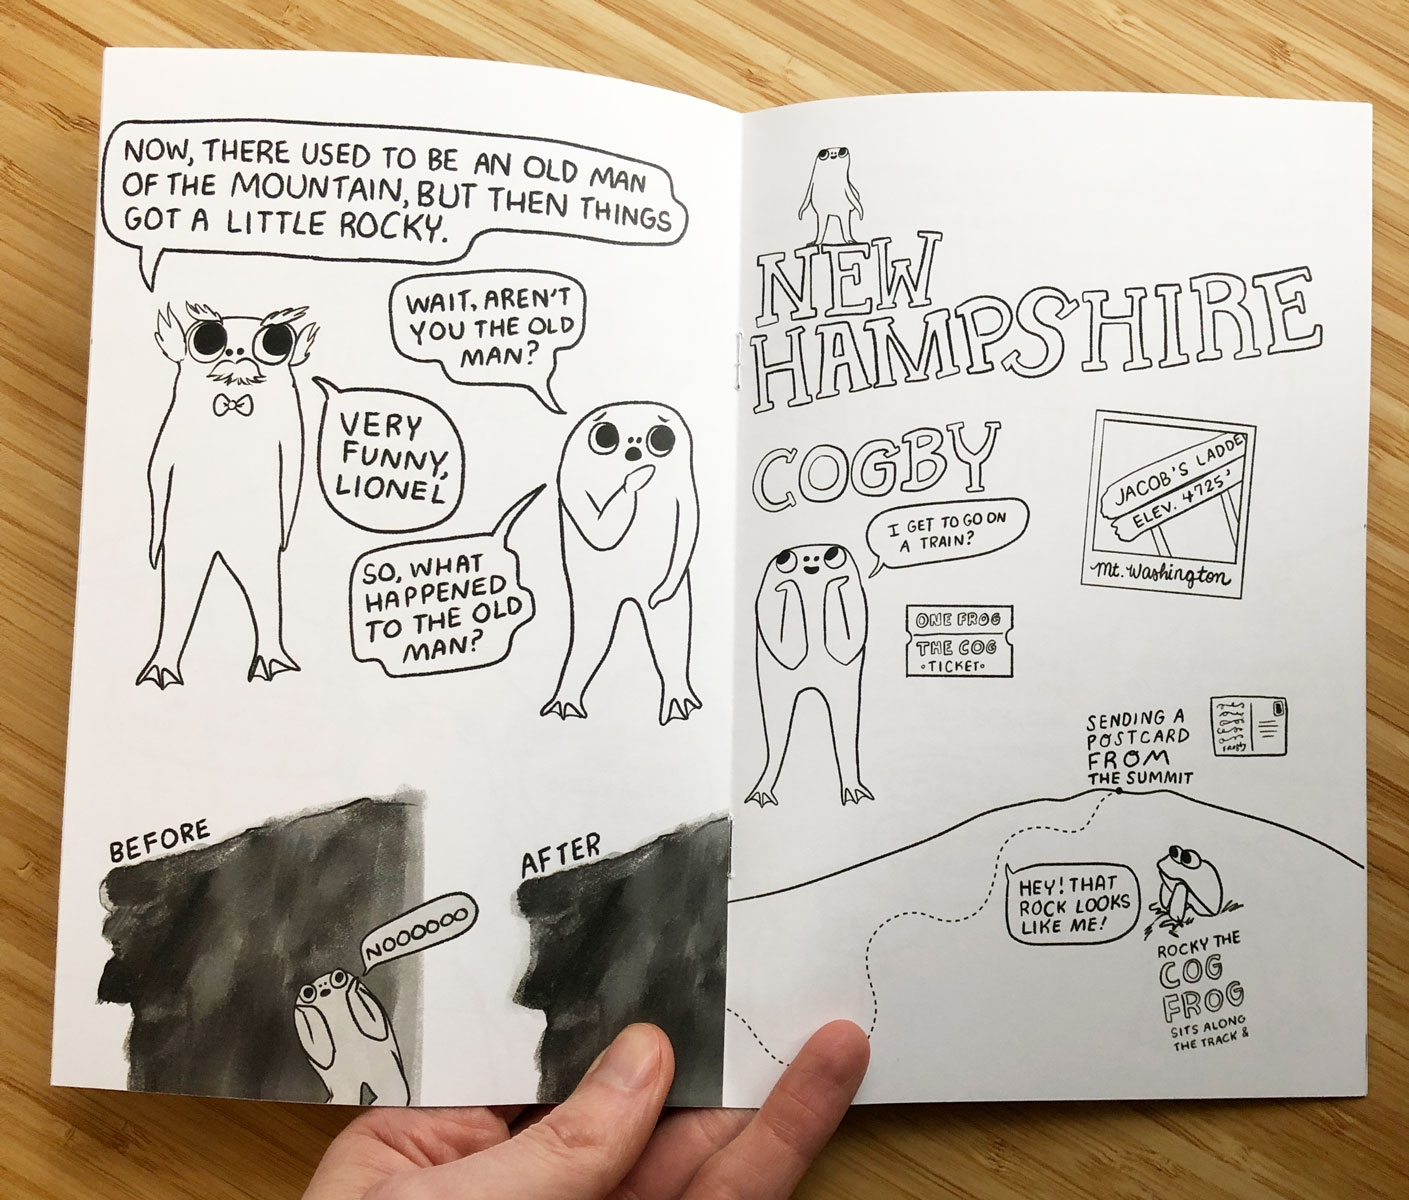 NOW, THERE USED TO BE AN OLD MAN
OF THE MOUNTAIN, BUT THEN THINGS
GOT A LITTLE ROCKY.
WAIT, AREN'T
YOU THE OLD
MAN?
VERY
FUNNY,
LIONEL
SO, WHAT
HAPPENED
TO THE OLD
MAN?
BEFORE
NOOOOOO
AFTER
NEW
HAMPSHIRE
COGBY
I GET TO GO ON
A TRAIN?
JACOB'S LADDE
ELEV. 4725'
Mt. Washington
ONE FROG
THE COG
•TICKET•
SENDING A
POSTCARD
FROM
THE SUMMIT
HEY! THAT
ROCK LOOKS
LIKE ME!
ROCKY THE
COG
FROG
SITS ALONG
THE TRACK &